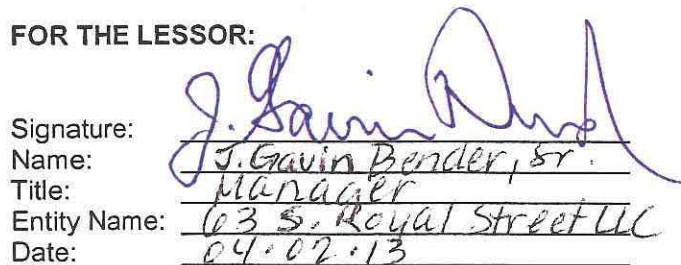 FOR THE LESSOR:
Signature: J. Gavin
Name: J. Gavin Bender, Sr.
Title: Manager
Entity Name: 63 S. Royal Street LLC
Date: 04.02.13